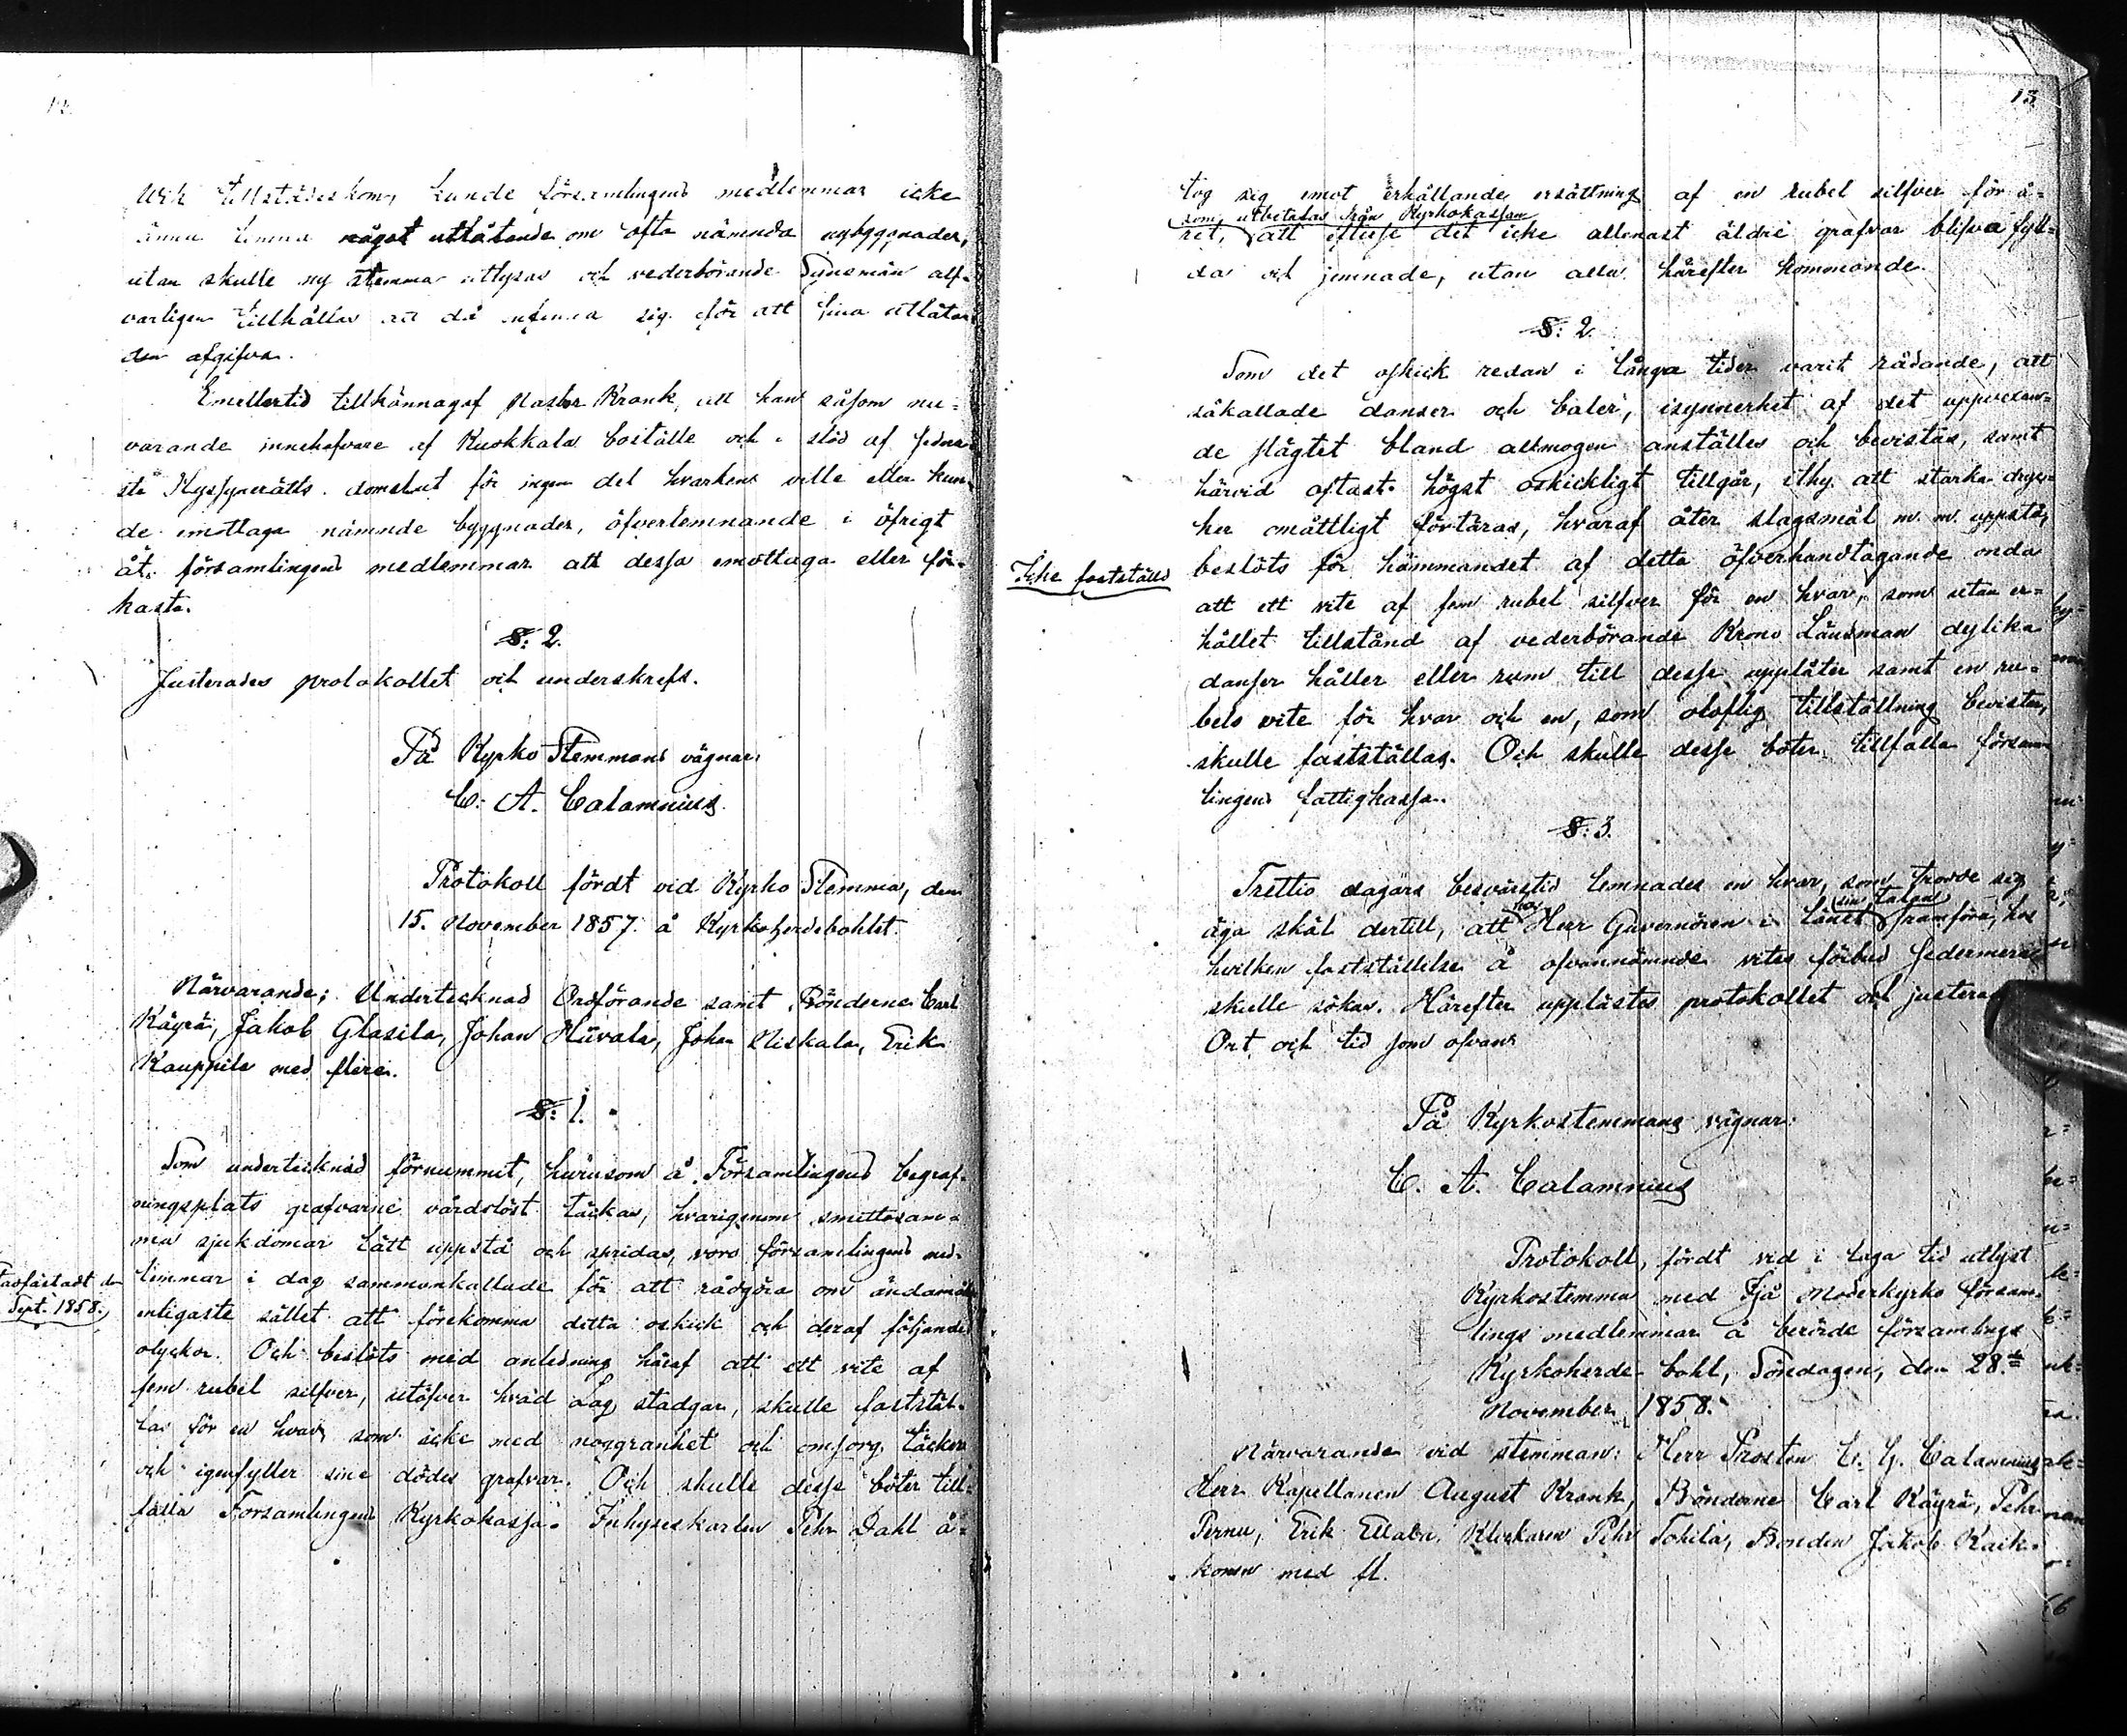 12.
tillstädeskom, kunde församlingens medlemmar icke
ännu lemna något utlåtande om ofta nämnda nybyggnader,
utan skulle ny stemma utlysas och vederbörande Länsmän all-
varligen tillhållas att då infinna sig för att sina utlåtan-
den afgifva.
Emellertid tillkännagaf Pastor Krank, att han såsom nu-
varande innehafvare af Kuokkala boställe och i stöd af sedna-
ste Husesynerätts domslut för ingen del hvarken ville eller kun-
de emottaga nämnde byggnader, öfverlemnande i öfrigt
åt församlingens medlemmar att dessa emottaga eller för-
kasta.
§: 2.
Justerades protokollet och underskrefs.
På Kyrko Stemmans vägnar:
C. A. Calamnius.
Protokoll fördt vid Kyrko Stemma, den
15. November 1857. å Kyrkoherdebohlet.
Närvarande; Undertecknad Ordförande samt Bönderne Carl
Käyrä, Jakob Glasila, Johan Hiivala, Johan Niskala, Erik
Kauppila med flere.
§: 1.
Som undertecknad förnummit, hurusom å Församlingens begraf-
ningsplats grafvarne vårdslöst täckas, hvarigenom smittosam-
ma sjukdomar lätt uppstå och spridas, voro församlingens med-
lemmar i dag sammankallade för att rådgöra om ändamåls-
Sept. 1858.
enligaste sättet att förekomma detta oskick och deraf följande
olyckor. Och beslöts med anledning häraf att ett vite af
fem rubel silfver, utöfver hvad Lag stadgar, skulle faststäl-
las för en hvar, som icke med noggranhet och omsorg täcker
och igenfyller sine dödes grafvar. Och skulle desse böter till-
falla Församlingens Kyrkokassa. Inhyseskarlen Pehr Dahl å-
13.
tog sig emot erhållande ersättning af en rubel silfver för å-
som utbetalas från Kyrkokassan
ret, att eftersé det icke allenast äldre grafvar blifva fyll-
da och jemnade, utan alla härefter kommande.
§: 2.
Som det oskick redan i långa tider varit rådande, att
såkallade danser och baler, isynnerhet af det uppvexan-
de slägtet bland allmogen anställes och bevistas, samt
härvid oftast högst oskickligt tillgår, ithy att starka dryc-
ker omåttligt förtäras, hvaraf åter slagsmål m. m. uppstå,
Icke fastställd
beslöts för hämmandet af detta öfverhandtagande onda
att ett vite af fem rubel silfver för en hvar, som utan er-
hållet tillstånd af vederbörande Krono Länsman dylika
danser håller eller rum till desse upplåter samt en ru-
bels vite för hvar och en, som oloflig tillställning bevistar,
skulle fastställas. Och skulle desse böter tillfalla försam-
lingens fattigkassa.
§: 3.
Trettio dagars besvärstid lemnades en hvar, som trodde sig
hos sin talan
äga skäl dertill, att Herr Guvernören i Länet framföra, hos
hvilken fastställelse å ofvannämnde vites förbud sedermera
skulle sökas. Härefter upplästes protokollet och justerades.
Ort och tid som ofvan.
På Kyrkostemmans vägnar:
C. A. Calamnius
Protokoll, fördt vid i laga tid utlyst
Kyrkostemma med Ijå Moderkyrko försam-
lings medlemmar å berörde församlings
Kyrkoherde bohl, Söndagen, den 28.de
November 1858.
Närvarande vid stemman: Herr Prosten C. G. Calamnius,
Herr Kapellanen August Krank, Bönderne Carl Käyrä, Pehr
Pernu, Erik Ellala, Klockaren Pehr Tohila, Bonden Jakob Kaik-
konen med fl.